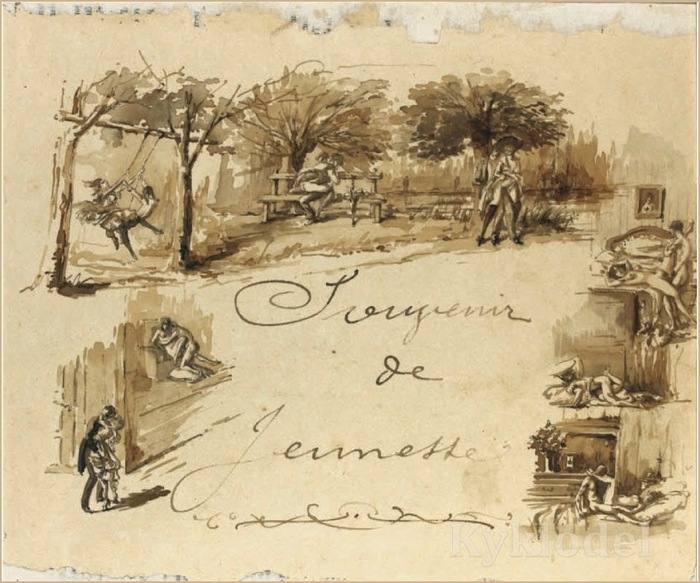 Souvenir
de
Jeunesse
Kyklodel